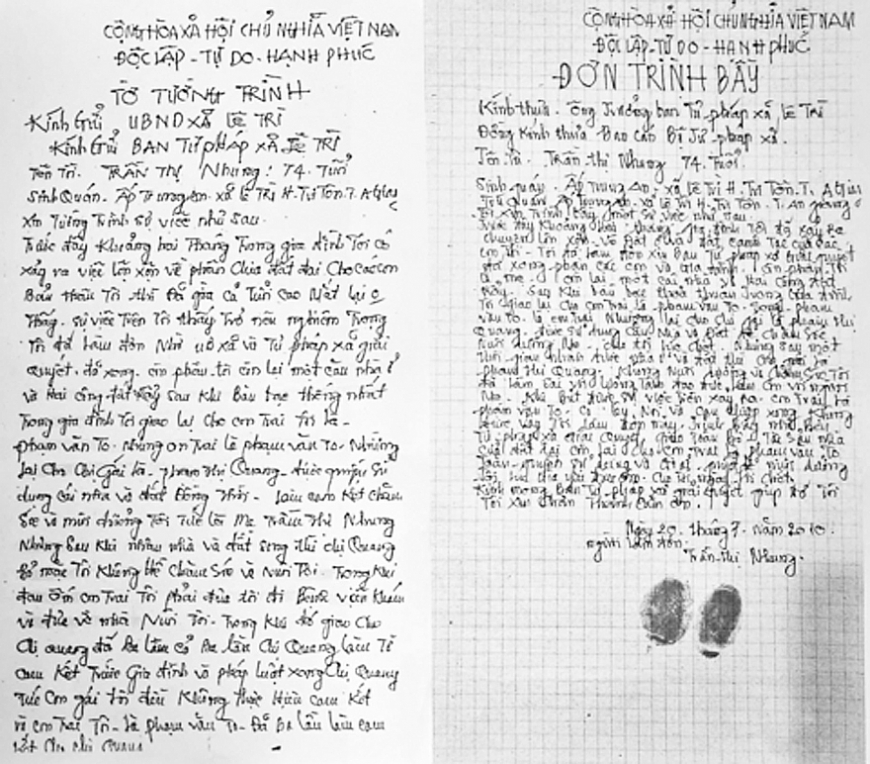 CỘNG HÒA XÃ HỘI CHỦ NGHĨA VIỆT NAM
ĐỘC LẬP - TỰ DO - HẠNH PHÚC
TỜ TƯỜNG TRÌNH
Kính Gửi UBND xã LÊ TRÌ
Kính Gửi BAN TƯ PHÁP XÃ LÊ TRÌ
Tôn Tri. TRẦN THỊ Nhung: 74. Tuổi
Sinh Quán. Ấp Trung An. xã LÊ TRÌ H. Tri Tôn. T. A
xin Tường Trình sự việc như sau
Trước đây Khoảng hai Tháng Trong gia đình Tôi có
xảy ra việc lộn xộn về phần chia đất đai Cho các con
Bản thân Tôi thì Đã già cả Tuổi cao
sự việc Trên Tôi thấy Trở nên nghiêm Trọng
Tôi đã làm đơn Nhờ UB xã và Tư pháp xã giải
quyết. đã xong. còn phần tôi còn lại một căn nhà ở
và Hai công đất Rẫy sau khi Bàn bạc thống nhất
Trong gia đình Tôi giao lại Cho con Trai Tôi là -
phạm văn To. Nhưng con Trai là phạm văn To. Nhường
lại Cho Chị Gái là. Phạm Thị Quang. được quyền sử
dụng cái nhà và đất Đồng Thời. Làm cam Kết chăm
sóc và nuôi dưỡng Tôi Tức là Mẹ Trần Thị Nhung
Nhưng Sau Khi nhận nhà và đất song thì chị Quang
bỏ mặc Tôi Không Hề chăm sóc và Nuôi Tôi. Trong Khi
đau ốm con Trai Tôi phải đưa tôi đi Bệnh viện Khám
và đưa về nhà Nuôi Tôi. Trong Khi đó giao Cho
Chị Quang đã Ba lần cả Ba lần Chị Quang làm Tờ
cam Kết Trước Gia đình và pháp luật xong Chị Quang
Tức Con gái tôi đều Không thực Hiện cam Kết
và con Trai Tôi - là phạm văn To. Đã Ba lần làm cam
Kết Cho chị Quang
CỘNG HÒA XÃ HỘI CHỦ NGHĨA VIỆT NAM
ĐỘC LẬP - TỰ DO - HẠNH PHÚC
ĐƠN TRÌNH BẦY
Kính thưa. Ông Trưởng ban Tư pháp xã LÊ TRÌ
Đồng Kính thưa Ban cán Bộ Tư pháp xã.
Tôn Tri. Trần thị Nhung 74. Tuổi.
Sinh quán. Ấp Trung An. xã Lê Trì H. Tri Tôn. T. A
Trú Quán Ấp Trung An. xã Lê Trì H. Tri Tôn. T. An giang
Tôi xin Trình bầy một sự việc như sau
Trước đây Khoảng Hai tháng gia đình Tôi đã xảy Ra
chuyện lộn xộn. về Đất đai canh tác của các
con Tôi. Tôi đã làm đơn xin Ban Tư pháp xã giải quyết
đã xong phần các con và Gia đình. Còn phần Tôi
là mẹ. còn lại một cái nhà và Hai công đất
Rẫy. Sau Khi Bàn bạc thỏa thuận Trong Gia đình
Tôi giao lại cho con trai là phạm văn To. Song phạm
văn To. là em Trai Nhường lại cho Chị Gái là phạm thị
Quang. được sử dụng căn Nhà và Đất để chăm sóc
Nuôi dưỡng Mẹ. Nhưng sau một
thời gian
phạm thị Quang. Không Nuôi dưỡng và chăm sóc Tôi
phạm văn To.
Tư pháp xã giải quyết. giao Toàn bộ
đất đai còn lại cho con Trai là phạm văn To
Toàn quyền sử dụng
Kính mong Ban Tư pháp xã giải quyết giúp đỡ Tôi
Tôi xin chân Thành Cảm ơn.
Ngày 20. tháng 7. năm 2010.
người làm đơn.
Trần thị Nhung.